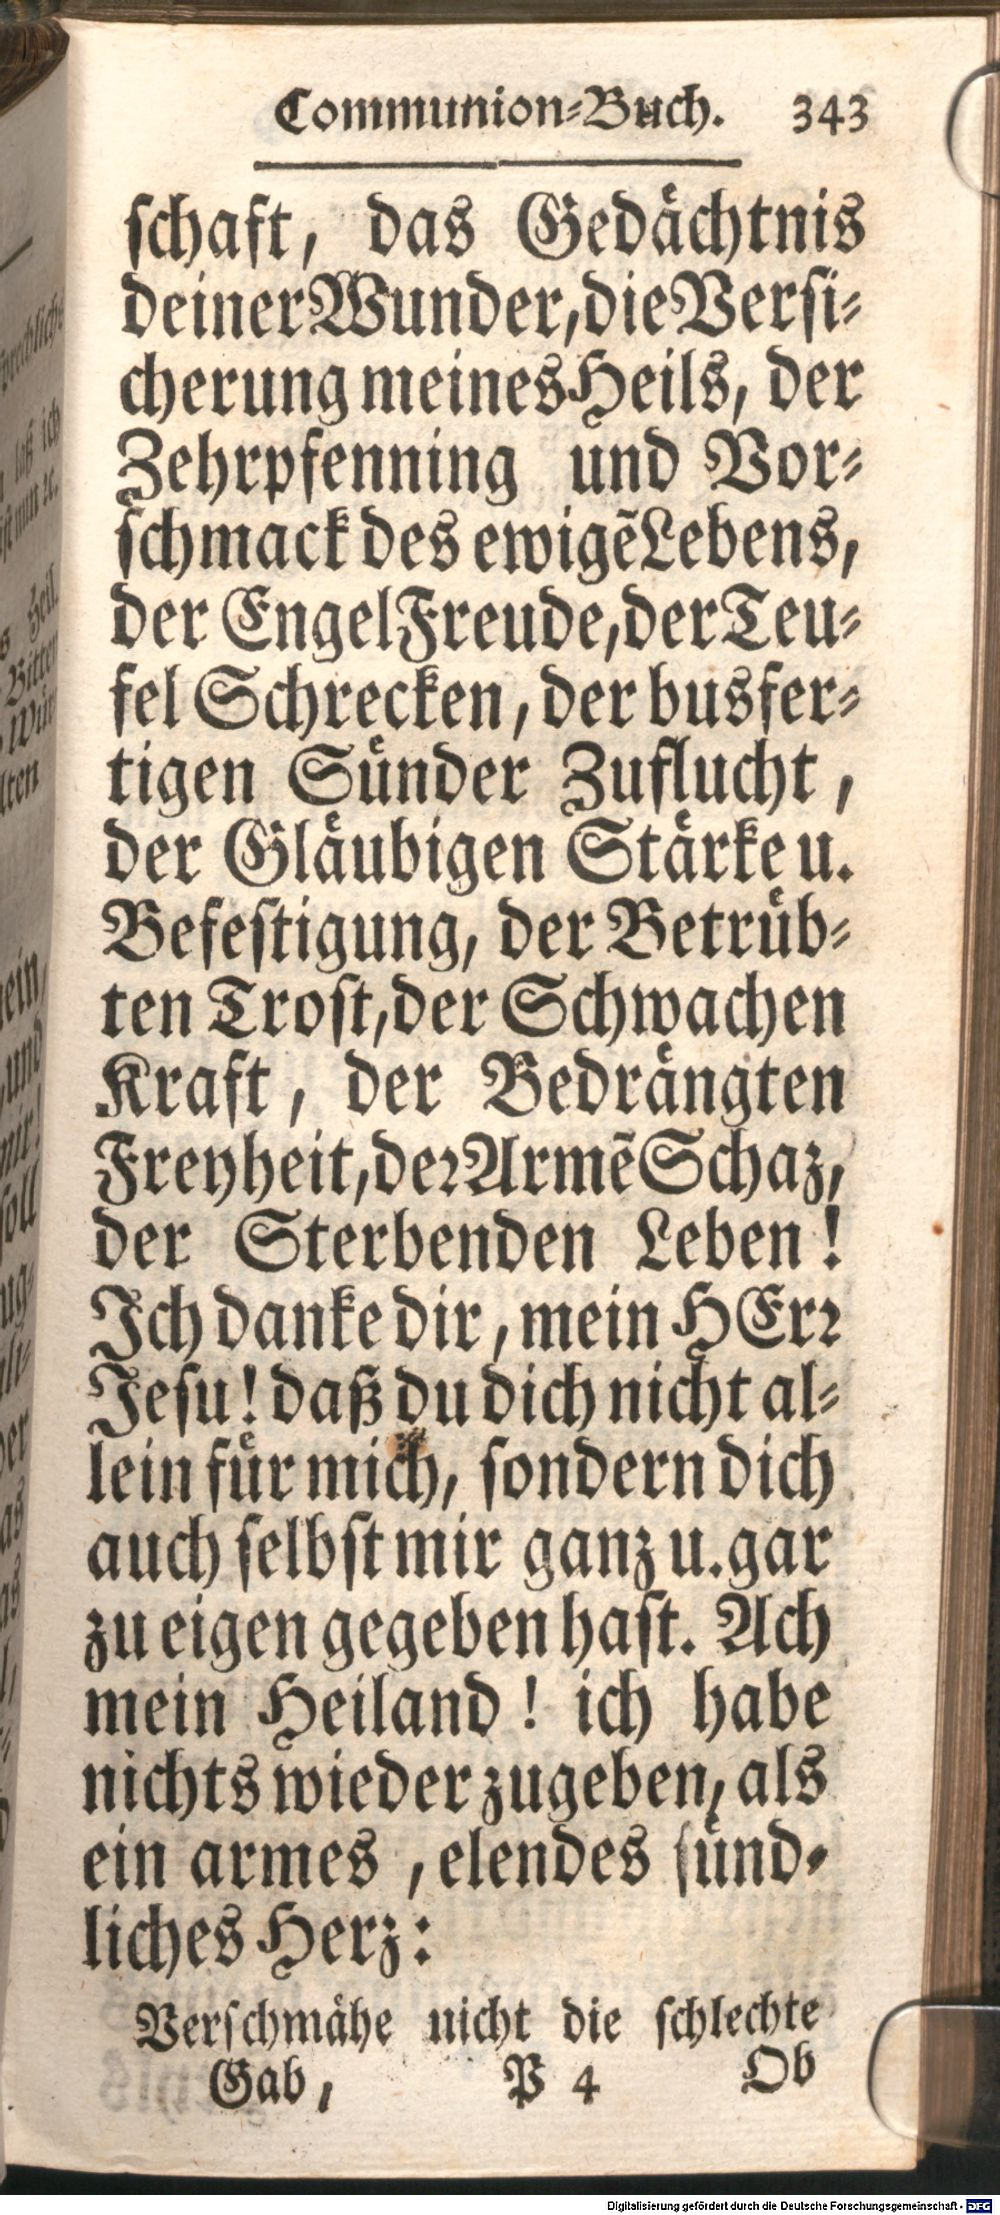 Communion-Buch. 343
ſchaft, das Gedächtnis
deiner Wunder, die Verſi-
cherung meines Heils, der
Zehrpfenning und Vor-
ſchmack des ewigẽ Lebens,
der Engel Freude, der Teu-
fel Schrecken, der busfer-
tigen Sünder Zuflucht,
der Gläubigen Stärke u.
Befeſtigung, der Betrüb-
ten Troſt, der Schwachen
Kraft, der Bedrängten
Freyheit, deꝛ Armẽ Schaz,
der Sterbenden Leben!
Ich danke dir, mein HErꝛ
Jeſu! daß du dich nicht al-
lein für mich, ſondern dich
auch ſelbſt mir ganz u. gar
zu eigen gegeben haſt. Ach
mein Heiland! ich habe
nichts wieder zugeben, als
ein armes, elendes ſünd-
liches Herz:
Verſchmähe nicht die ſchlechte
Gab, P 4 Ob
Digitalisierung gefördert durch die Deutsche Forschungsgemeinschaft - DFG